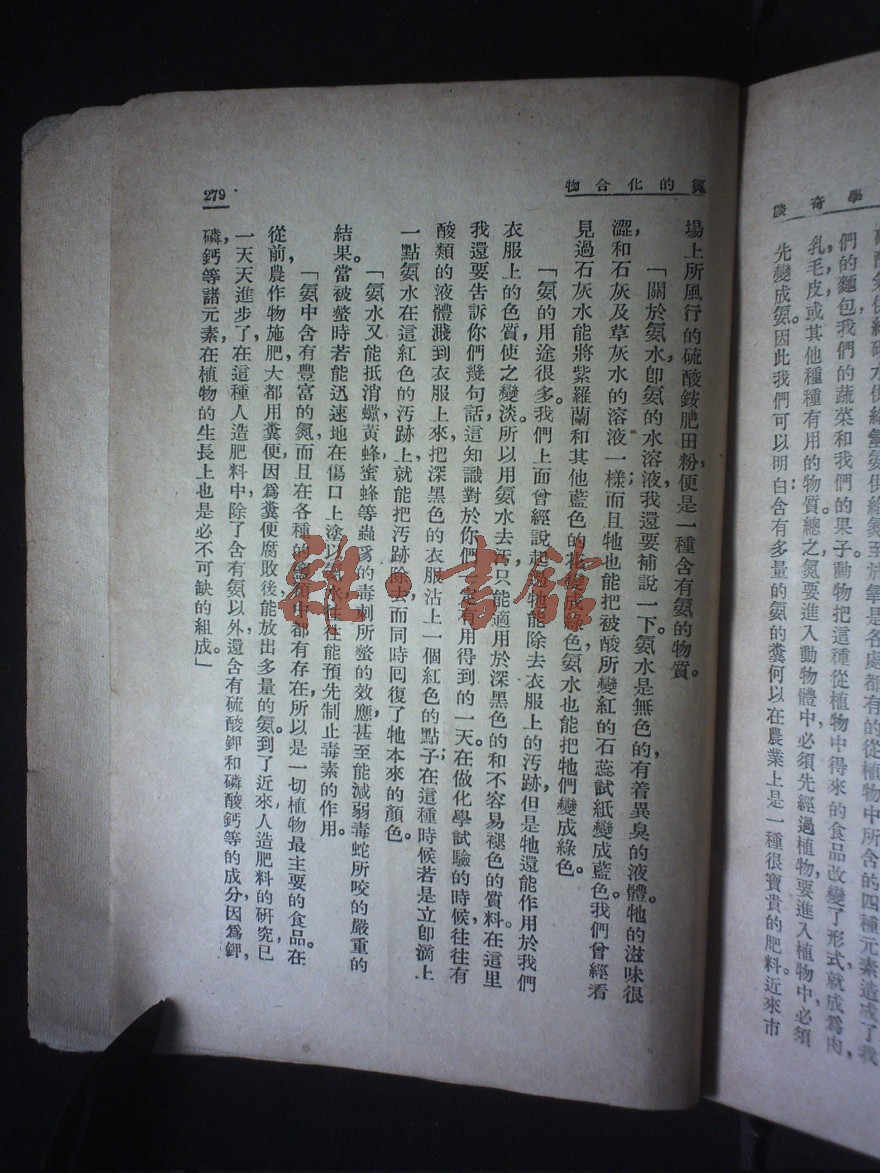 學奇談
們的麵包我們的蔬菜和我們的果子動物把這種從植物中得來的食品改變了形式就成爲肉，
乳，毛皮或其他種種有用的物質總之氮要進入動物體中必須先經過植物要進入植物中，必須
先變成氨。因此我們可以明白：含有多量的氨的糞何以在農業上是一種很寶貴的肥料。近來市
氮的化合物
279
場上所風行的硫酸銨肥田粉，便是一種含有氨的物質。
「關於氨水，卽氨的水溶液，我還要補說一下。氨水是無色的，有着異臭的液體。牠的滋味很
澀，和石灰及草灰水的溶液一樣；而且牠也能把被酸所變紅的石蕊試紙變成藍色。我們曾經看
見過石灰水能將紫羅蘭和其他藍色的花變成綠色，氨水也能把牠們變成綠色。
「氨的用途很多。我們上面曾經說起過牠能除去衣服上的汚跡，但是牠還能作用於我們
衣服上的色質使之變淡。所以用氨水去汚，只能適用於深黑色的和不容易褪色的質料。在這里
我還要告訴你們幾句話，這知識對於你們一定有用得到的一天。在做化學試驗的時候，往往有
酸類的液體濺到衣服上來，把深黑色的衣服沾上一個紅色的點子；在這種時候若是立卽滴上
一點氨水在這紅色的汚跡上，就能把汚跡除去，而同時回復了牠本來的顏色。
「氨水又能抵消蠍，黃蜂，蜜蜂等蟲豸的毒刺所螫的效應，甚至能減弱毒蛇所咬的嚴重的
結果。當被螫時，若能迅速地在傷口上塗以氨水，往往能預先制止毒素的作用。
「氨中含有豐富的氮，而且在各種的 中都有存在，所以是一切植物最主要的食品。在
從前，農作物施肥，大都用糞便，因爲糞便腐敗後能放出多量的氨。到了近來，人造肥料的硏究已
一天天進步了，在這種人造肥料中，除了含有氨以外，還含有硫酸鉀和磷酸鈣等的成分，因爲鉀，
磷，鈣等諸元素在植物的生長上也是必不可缺的組成。」
雜·書館